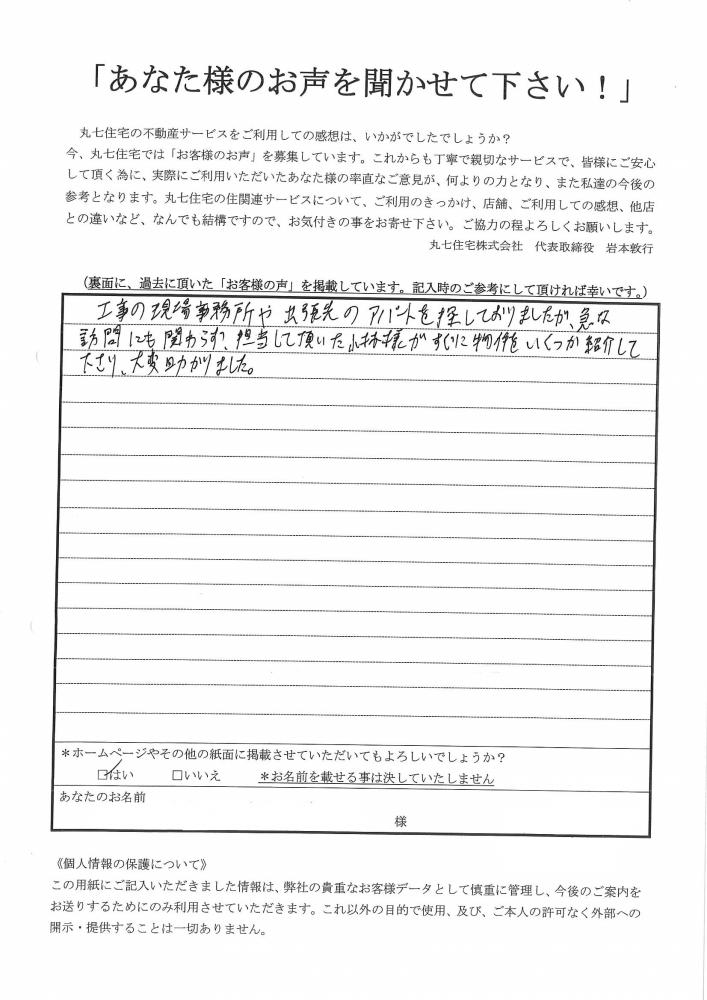 「あなた様のお声を聞かせて下さい！」
丸七住宅の不動産サービスをご利用しての感想は、いかがでしたでしょうか？
今、丸七住宅では「お客様のお声」を募集しています。これからも丁寧で親切なサービスで、皆様にご安心
して頂く為に、実際にご利用いただいたあなた様の率直なご意見が、何よりの力となり、また私達の今後の
参考となります。丸七住宅の住関連サービスについて、ご利用のきっかけ、店舗、ご利用しての感想、他店
との違いなど、なんでも結構ですので、お気付きの事をお寄せ下さい。ご協力の程よろしくお願いします。
丸七住宅株式会社　代表取締役　岩本敦行
（裏面に、過去に頂いた「お客様の声」を掲載しています。記入時のご参考にして頂ければ幸いです。）
工事の現場事務所や出張先のアパートを探しておりましたが、急な
訪問にも関わらず、担当して頂いた小林様がすぐに物件をいくつか紹介して
下さり、大変助かりました。
＊ホームページやその他の紙面に掲載させていただいてもよろしいでしょうか？
☑はい　□いいえ　＊お名前を載せる事は決していたしません
あなたのお名前
様
《個人情報の保護について》
この用紙にご記入いただきました情報は、弊社の貴重なお客様データとして慎重に管理し、今後のご案内を
お送りするためにのみ利用させていただきます。これ以外の目的で使用、及び、ご本人の許可なく外部への
開示・提供することは一切ありません。